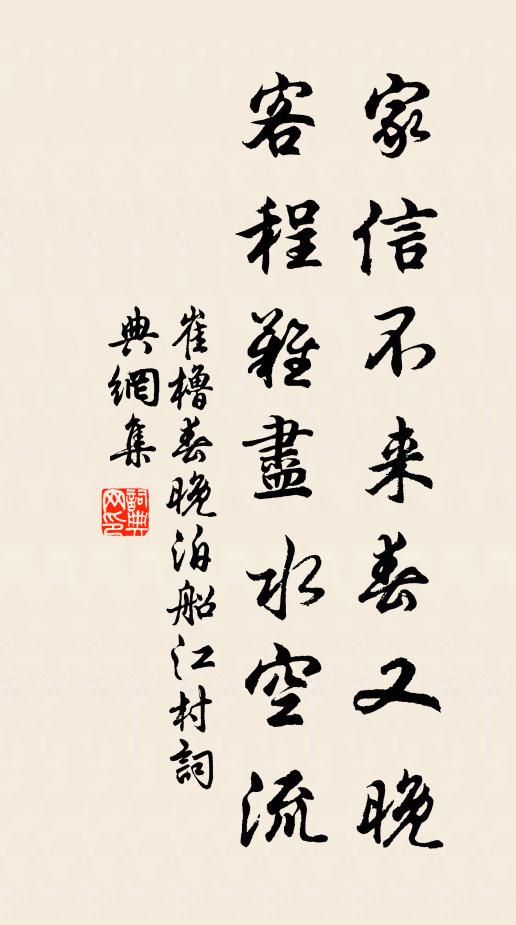 家信不来春又晚
客程難盡水空流
崔櫓春晚泊船江村詞
典網集
詞典
网印